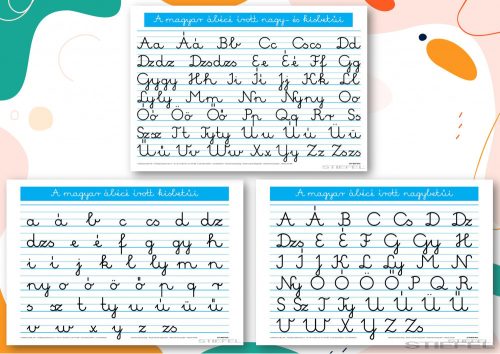 A magyar ábécé írott nagy- és kisbetűi
Aa Áá Bb Cc Cscs Dd
Dzdz Dzsdzs Ee Éé Ff Gg
Gygy Hh Ii Íí Jj Kk Ll
Lyly Mm Nn Nyny Oo
Óó Öö Őő Pp Qq Rr Ss
Szsz Tt Tyty Uu Úú Üü
Űű Vv Ww Xx Yy Zz Zszs
STIEFEL
A magyar ábécé írott kisbetűi
a á b c cs d dz
dzs e é f g gy h
i í j k l ly m n
ny o ó ö ő p q r
s sz t ty u ú ü ű
v w x y z zs
A magyar ábécé írott nagybetűi
A Á B C Cs D Dz
Dzs E É F G Gy H
I Í J K L Ly M N
Ny O Ó Ö Ő P Q R
S Sz T Ty U Ú Ü Ű
V W X Y Z Zs
STIEFEL